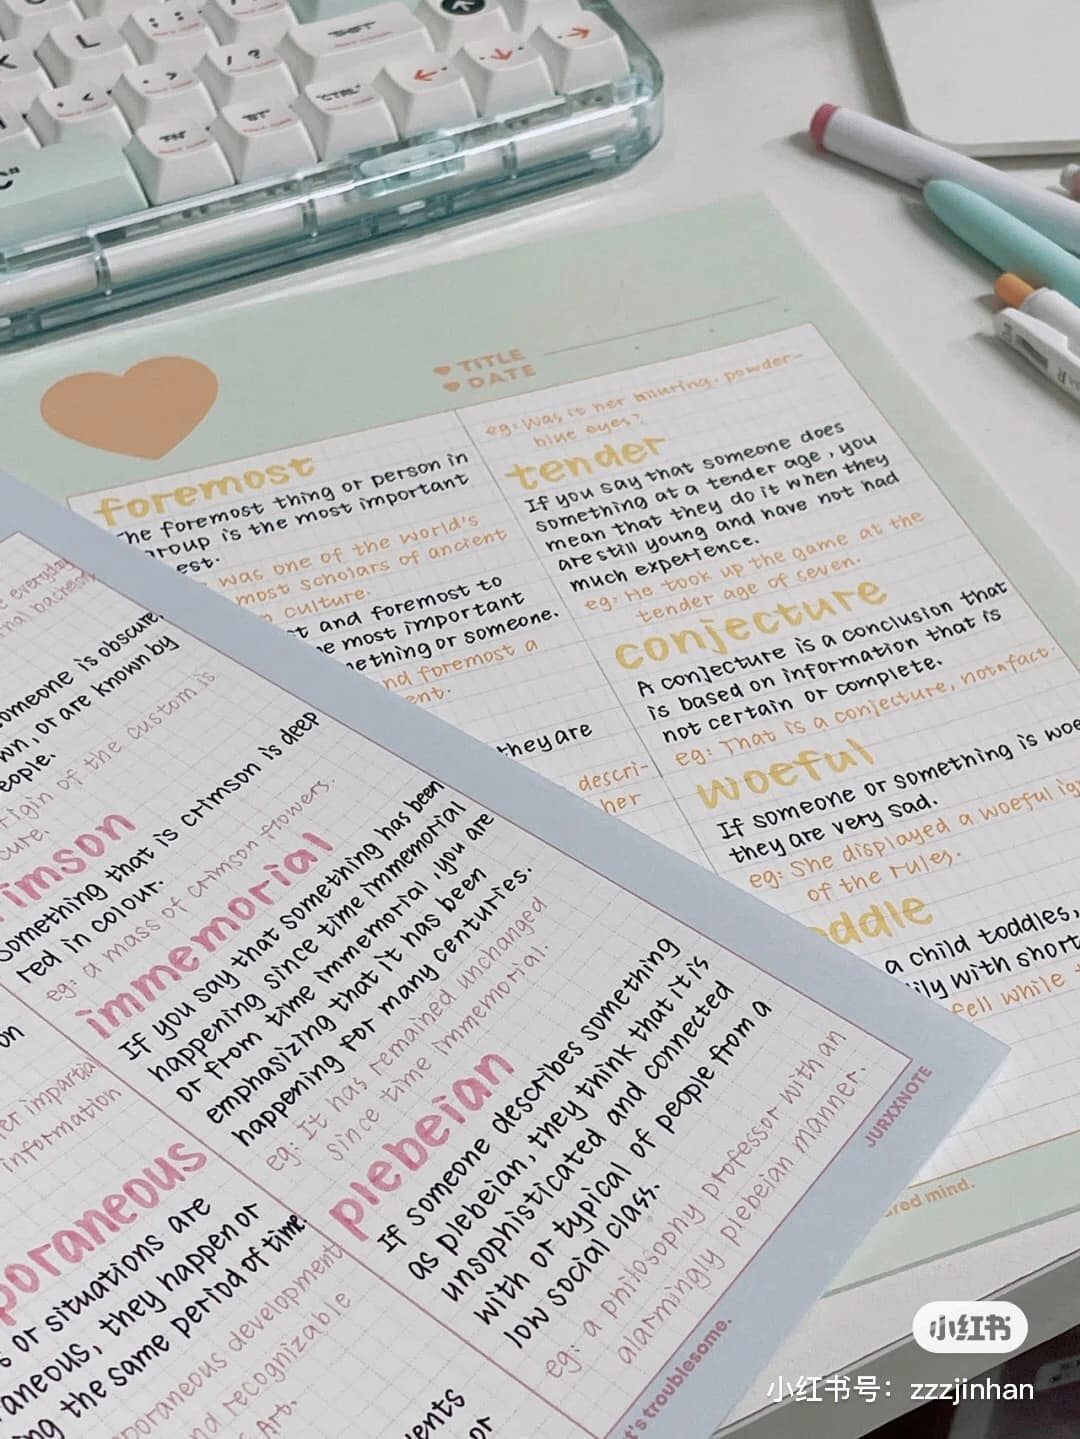 L
TITLE
DATE
foremost
The foremost thing or person in
group is the most important
est.
was one of the world's
most scholars of ancient
culture.
st and foremost to
he most important
mething or someone.
nd foremost a
ent.
they are
descri-
her
eg: Was it her alluring, powder-
blue eyes?
tender
If you say that someone does
something at a tender age, you
mean that they do it when they
are still young and have not had
much experience.
eg: He took up the game at the
tender age of seven.
conjecture
A conjecture is a conclusion that
is based on information that is
not certain or complete.
eg: That is a conjecture, not a fact.
woeful
If someone or something is woe
they are very sad.
eg: She displayed a woeful ig
of the rules.
oddle
a child toddles,
ily with short
fell while
ered mind.
e everyday
someone is obscure,
wn, or are known by
eople.
rigin of the custom is
cure.
rimson
Something that is crimson is deep
red in colour.
eg: a mass of crimson flowers.
immemorial
If you say that something has been
happening since time immemorial
or from time immemorial, you are
emphasizing that it has been
happening for many centuries.
eg: It has remained unchanged
since time immemorial.
plebeian
If someone describes something
as plebeian, they think that it is
unsophisticated and connected
with or typical of people from a
low social class.
eg: a philosophy professor with an
alarmingly plebeian manner.
on
er impartial
information
poraneous
s or situations are
raneous, they happen or
ng the same period of time.
poraneous development
nd recognizable
Art.
ents
or
JURXXNOTE
t's troublesome.
小红书
小红书号：zzzjinhan